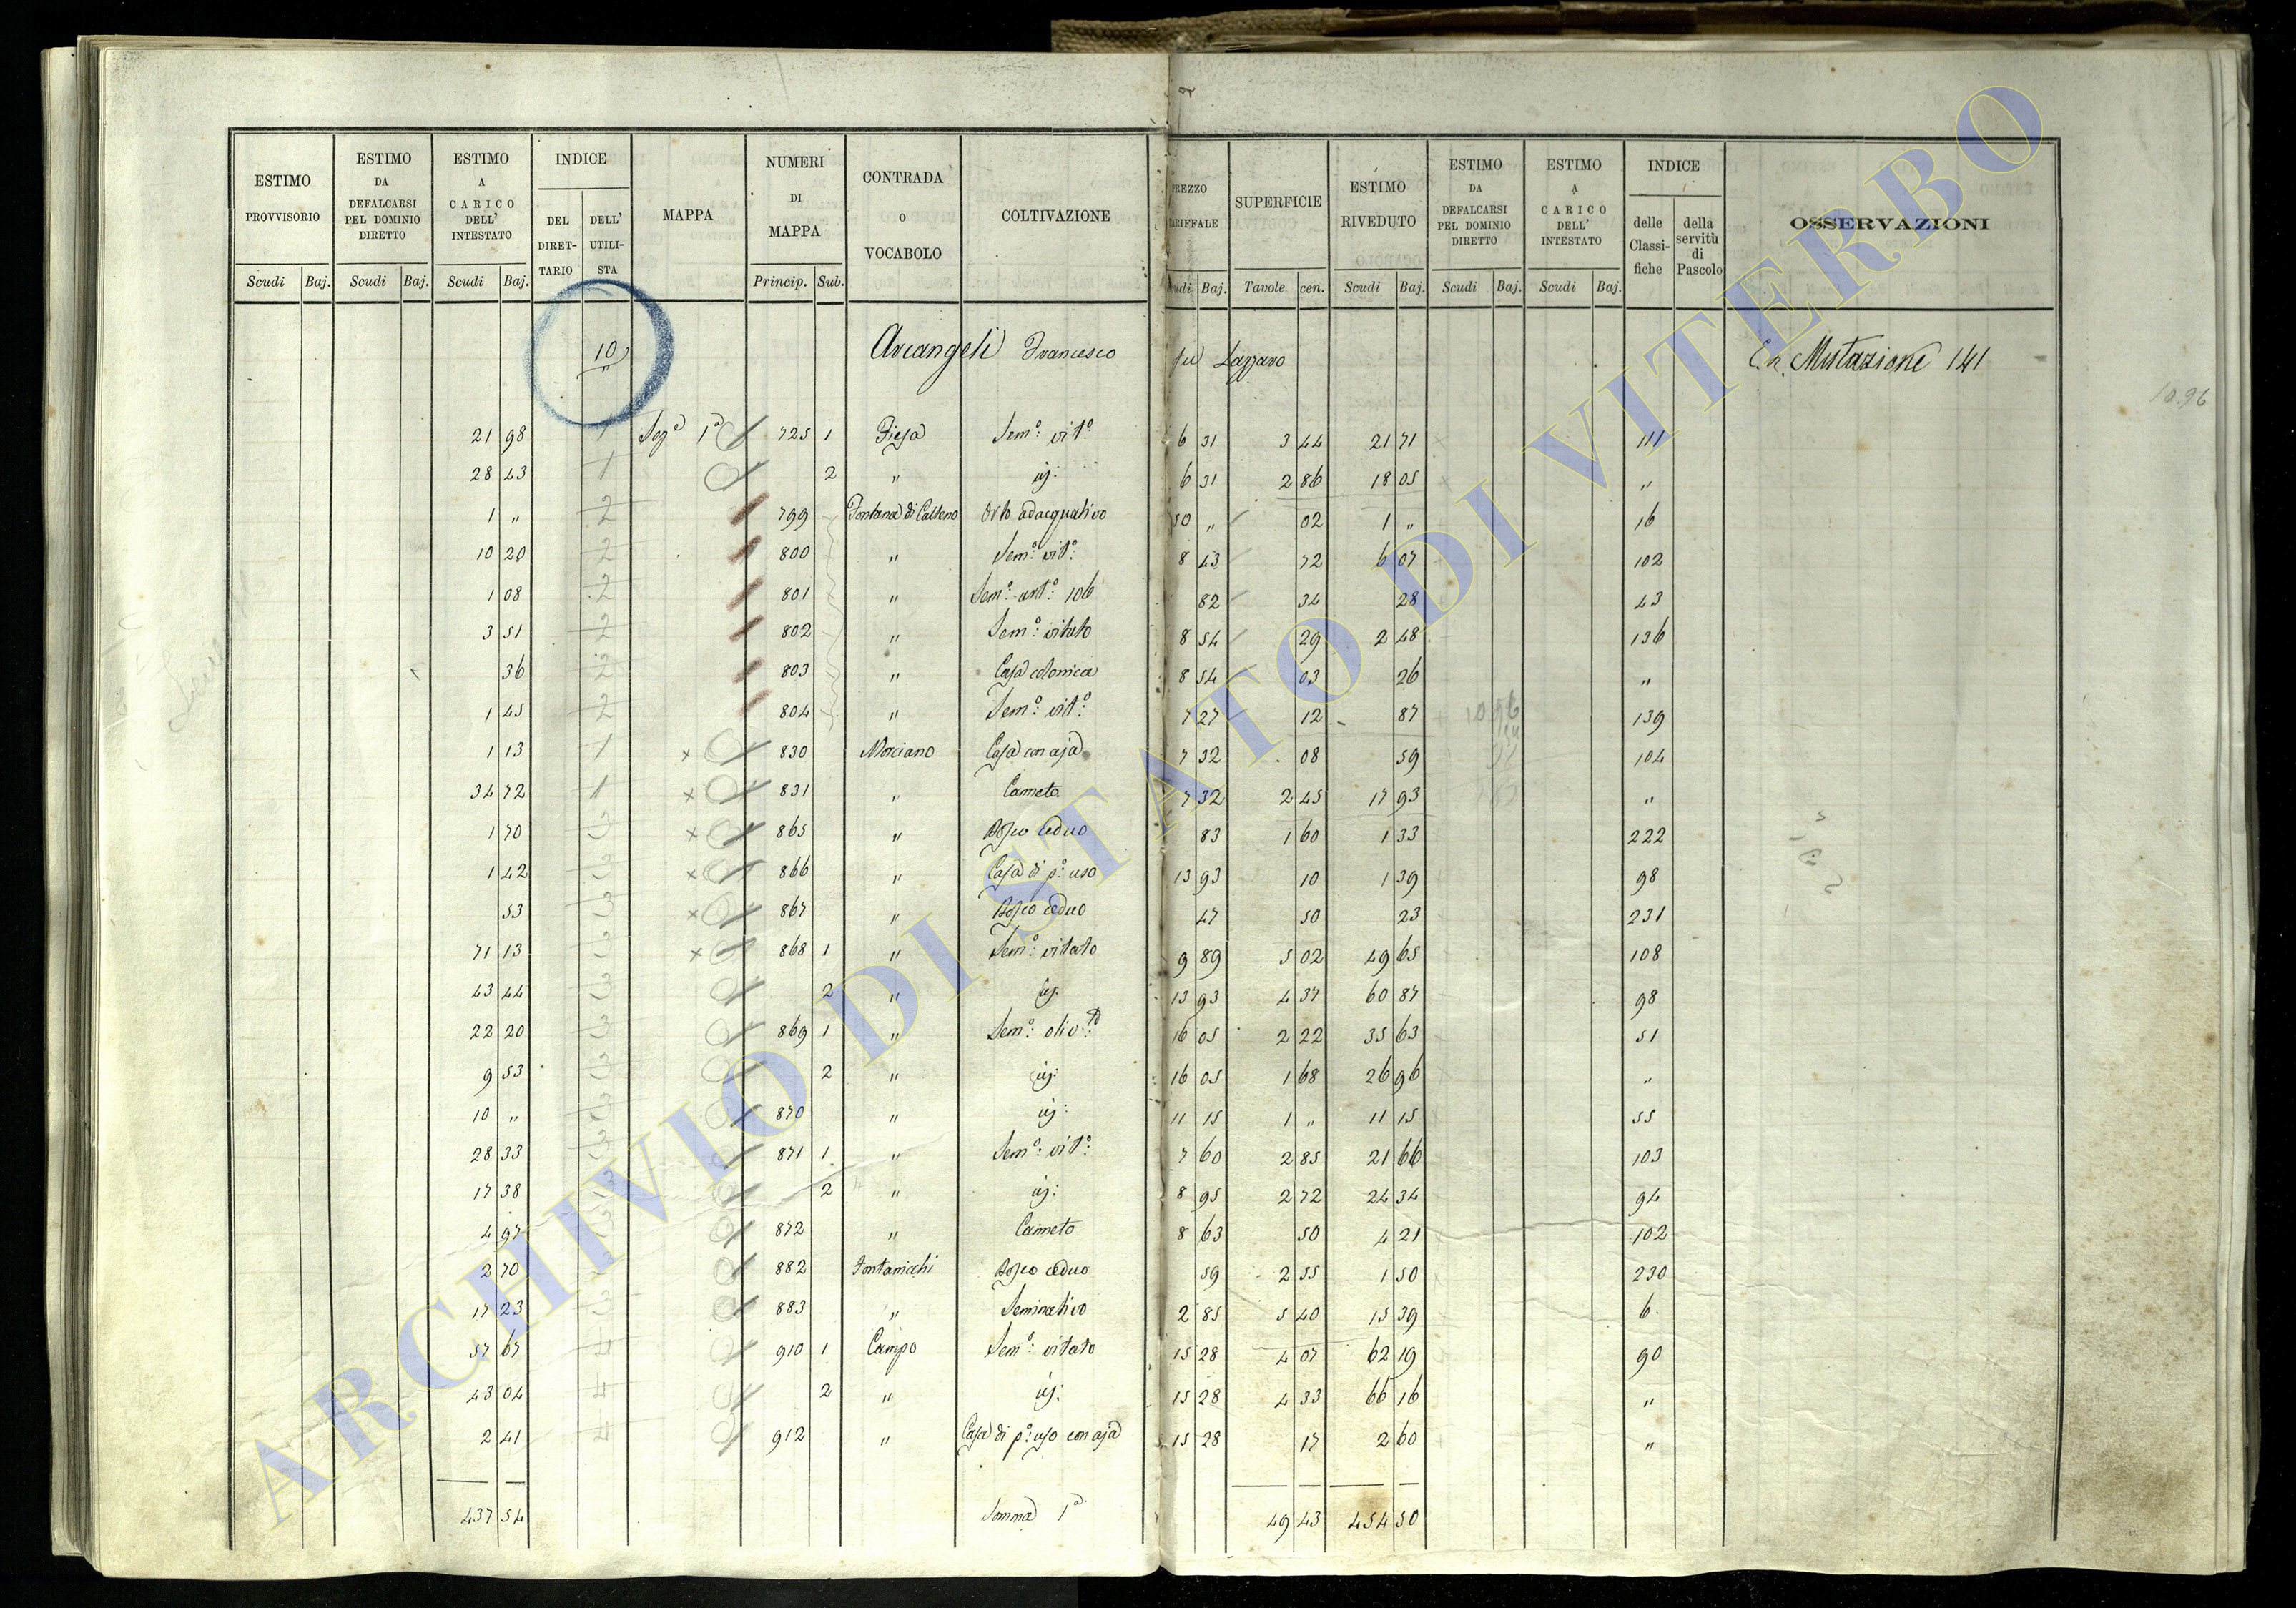 ESTIMO PROVVISORIO Scudi Baj. ESTIMO DA DEFALCARSI PEL DOMINIO DIRETTO Scudi Baj. ESTIMO A CARICO DELL' INTESTATO Scudi Baj. INDICE DEL DIRETTARIO DELL' UTILISTA MAPPA NUMERI DI MAPPA Princip. Sub. CONTRADA O VOCABOLO COLTIVAZIONE PREZZO TARIFFALE Scudi Baj. SUPERFICIE Tavole cen. ESTIMO RIVEDUTO Scudi Baj. ESTIMO DA DEFALCARSI PEL DOMINIO DIRETTO Scudi Baj. ESTIMO A CARICO DELL' INTESTATO Scudi Baj. INDICE delle Classifiche della servitù di Pascolo OSSERVAZIONI
10 Arcangeli Francesco fu Lazzaro Mutazione 141
10.96
21 98 1 Sez.ª 1ª 725 1 Piesa Sem.º vit.º 6 31 3 44 21 71 111
28 43 1 2 " id: 6 31 2 86 18 05 "
1 " 2 799 Fontana di Calleno Orto adacquativo 50 " 02 1 " 16
10 20 2 800 " Sem.º vit.º 8 43 72 6 07 102
1 08 2 801 " Sem.º 106 82 34 28 43
3 51 2 802 " Sem.º vitato 8 54 29 2 48 136
36 2 803 " Casa colonica 8 54 03 26 "
1 45 2 804 " Sem.º vit.º 7 27 12 87 139
1 13 1 830 Morciano Casa con aja 7 32 08 59 104
34 72 1 831 " Canneto 7 32 2 45 17 93 "
1 70 3 865 " Bosco ceduo 83 1 60 1 33 222
1 42 3 866 " Casa di p.º uso 13 93 10 1 39 98
53 3 867 " Bosco ceduo 47 50 23 231
71 13 3 868 1 " Sem.º vitato 9 89 5 02 49 65 108
43 44 3 2 " id. 13 93 4 37 60 87 98
22 20 3 869 1 " Sem.º oliv.to 16 05 2 22 35 63 51
9 53 3 2 " id: 16 05 1 68 26 96 "
10 " 3 870 " id: 11 15 1 " 11 15 55
28 33 3 871 1 " Sem.º vit.º 7 60 2 85 21 66 103
17 38 3 2 " id: 8 95 2 72 24 34 94
4 97 3 872 " Canneto 8 63 50 4 21 102
2 70 3 882 Fontanicchi Bosco ceduo 59 2 55 1 50 230
17 23 3 883 " Seminativo 2 85 5 40 15 39 6
57 67 4 910 1 Campo Sem.º vitato 15 28 4 07 62 19 90
43 04 4 2 " id: 15 28 4 33 66 16 "
2 41 4 912 " Casa di p.º uso con aja 15 28 17 2 60 "
437 54 Somma 1ª 49 43 454 50
ARCHIVIO DI STATO DI VITERBO